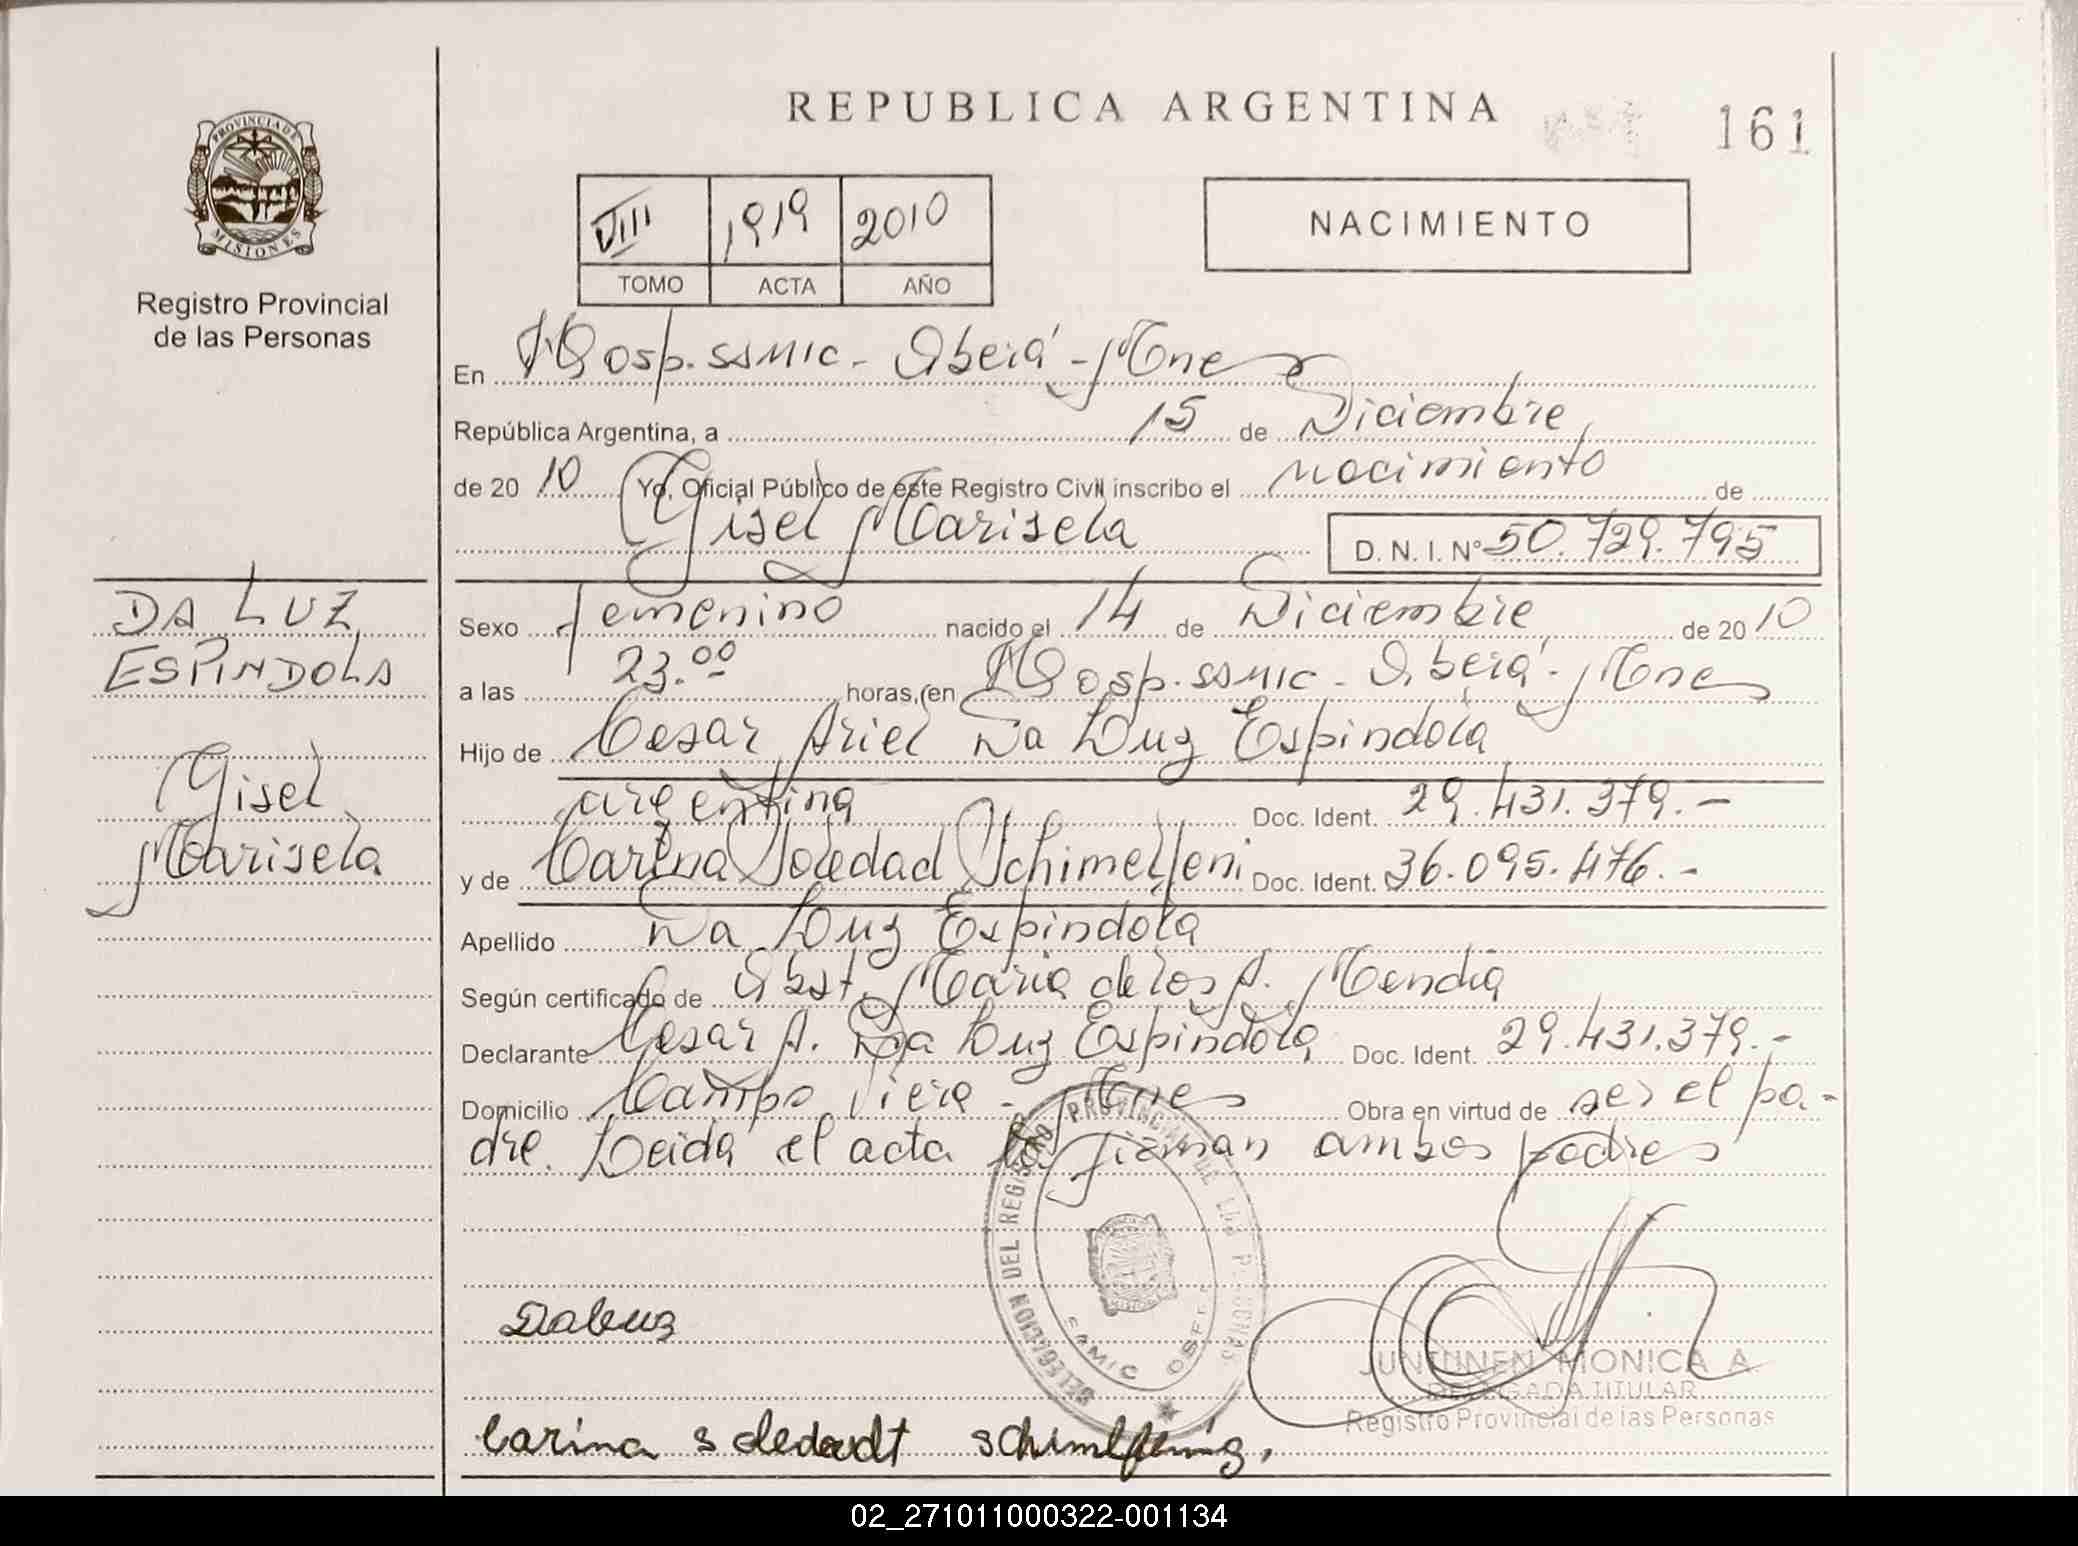 REPUBLICA ARGENTINA
161
PROVINCIA DE
MISIONES
Registro Provincial
de las Personas
VIII 1919 2010
TOMO ACTA AÑO
NACIMIENTO
En Hosp. SSMIC - Oberá - Mnes
República Argentina, a 15 de Diciembre
de 20 10 Yo, Oficial Público de este Registro Civil inscribo el nacimiento de
Gisel Marisela D. N. I. Nº 50.729.795
DA LUZ
ESPINDOLA
Gisel
Marisela
Sexo femenino nacido el 14 de Diciembre de 20 10
a las 23.00 horas, en Hosp. SSMIC - Oberá - Mnes
Hijo de Cesar Ariel Da Luz Espindola
argentina Doc. Ident. 29.431.379.-
y de Carina Soledad Schimelfeni Doc. Ident. 36.095.476.-
Apellido Da Luz Espindola
Según certificado de Obst. Maria de los A. Mendia
Declarante Cesar A. Da Luz Espindola Doc. Ident. 29.431.379.-
Domicilio Campo Viera - Mnes Obra en virtud de ser el pa-
dre. Leida el acta la firman ambos padres
DELEGACION DEL REGISTRO PROVINCIAL DE LAS PERSONAS
Daluz
JUNTUNEN MONICA A
DELEGADA TITULAR
Registro Provincial de las Personas
Carina
02_271011000322-001134